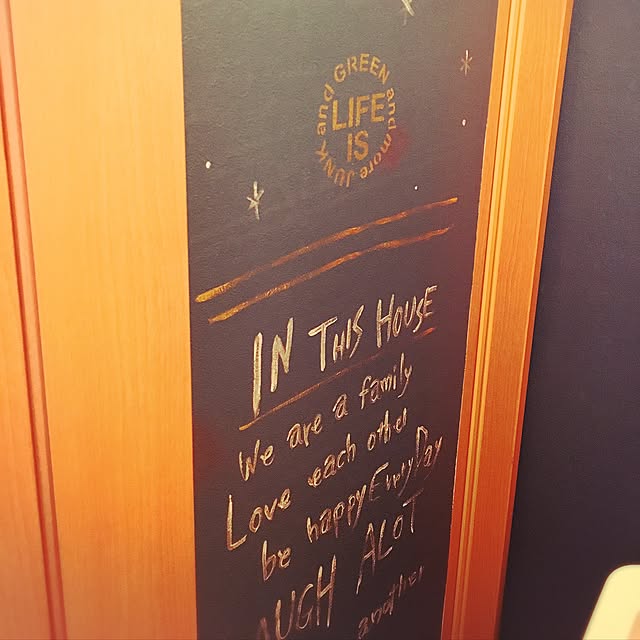 GREEN and more JUNK and
LIFE
IS
IN THIS HOUSE
We are a family
Love each other
be happy Every Day
AUGH ALOT
another